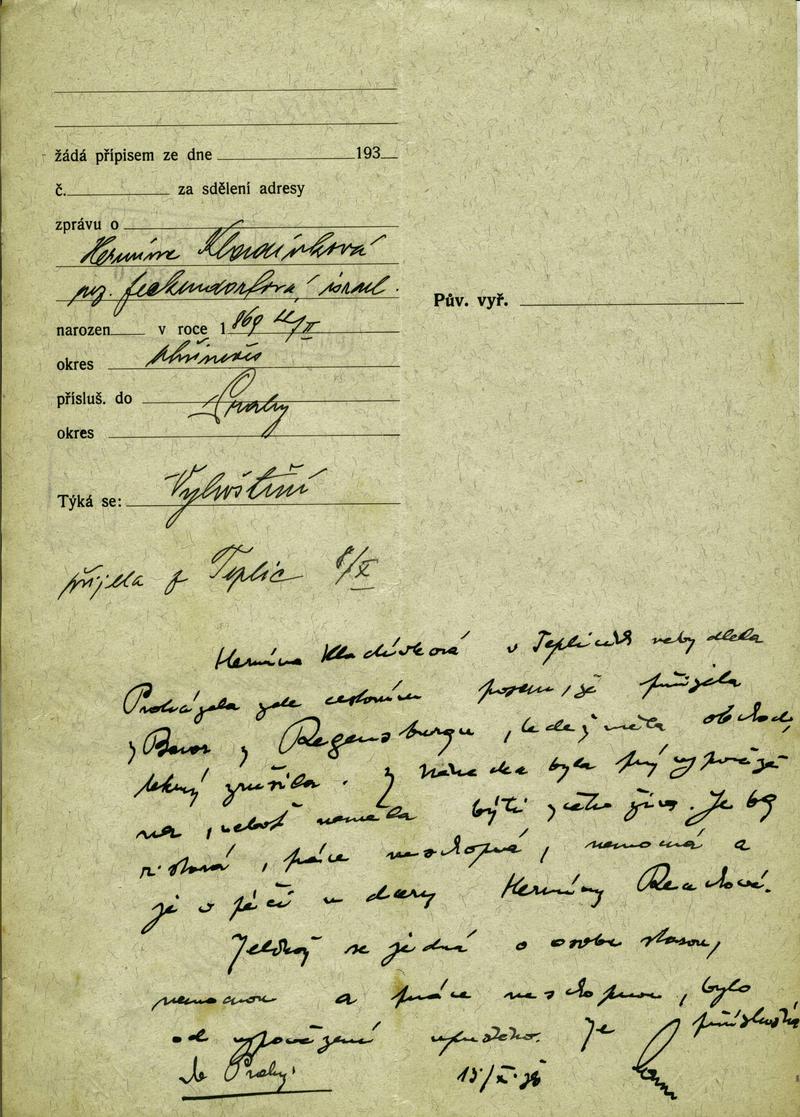 žádá přípisem ze dne 193
č. za sdělení adresy
zprávu o
Hermíně Kladívková
roz. israel.
narozen v roce 1869 /II
okres
přísluš. do Prahy
okres
Týká se: Vyhoštění
přijela z Teplic 8/X
Pův. vyř.
Hermína Kladívková v Teplicích nebydlela
Prokázala zde cestovním pasem, že přijela
z Bavor z Regensburgu, kde měla obchod,
který zrušila. Z Německa byla prý vypověze
na, neboť neměla býti z čeho živa. Je 69
r. stará, práce neschopná, nemocná a
je v péči u dcery Hermíny
Jelikož se jedná o osobu starou,
nemocnou a práce neschopnou, bylo
od vypovězení upuštěno. Je příslušná
do Prahy.
15/X 38